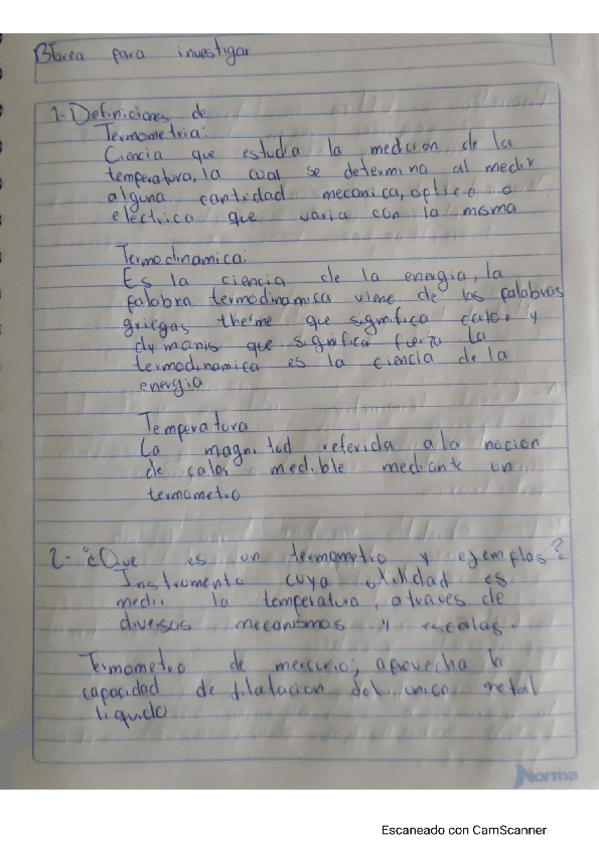 Tarea para investigar
1- Definiciones de
Termometria:
Ciencia que estudia la medicion de la
temperatura, la cual se determina al medir
alguna cantidad mecanica, optica o
electrica que varia con la misma
Termodinamica:
Es la ciencia de la energia, la
palabra termodinamica viene de las palabras
griegas therme que significa calor y
dymanis que significa fuerza la
termodinamica es la ciencia de la
energia
Temperatura
La magnitud referida a la nocion
de calor medible mediante un
termometro
2- ¿Que es un termometro y ejemplos?
Instrumento cuya utilidad es
medir la temperatura, a traves de
diversos mecanismos y escalas.
Termometro de mercurio; aprovecha la
capacidad de dilatacion del unico metal
liquido
Norma
Escaneado con CamScanner